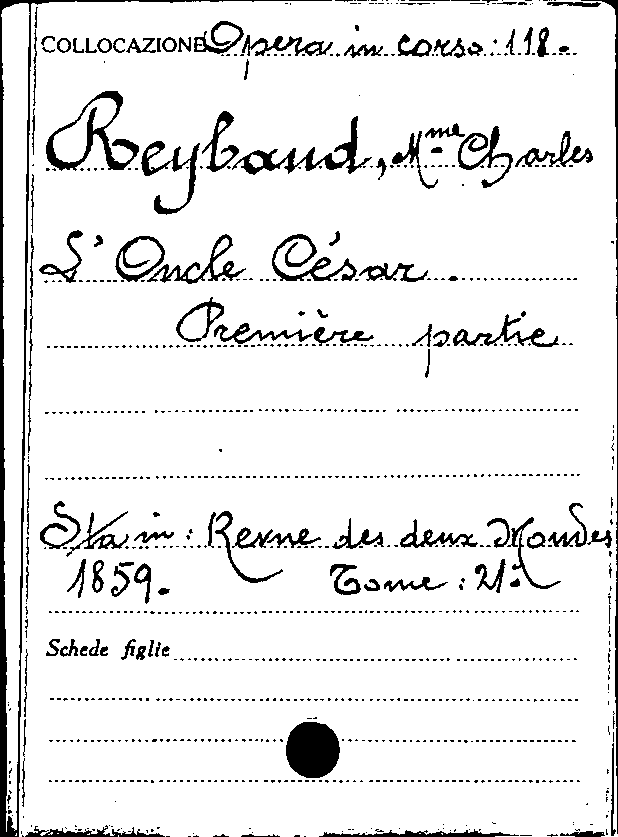 COLLOCAZIONE Opera in corso: 118.
Reybaud, Mme Charles
L' Oncle César.
Première partie
Sta in: Revue des deux Mondes
1859. Tome: 21:
Schede figlie